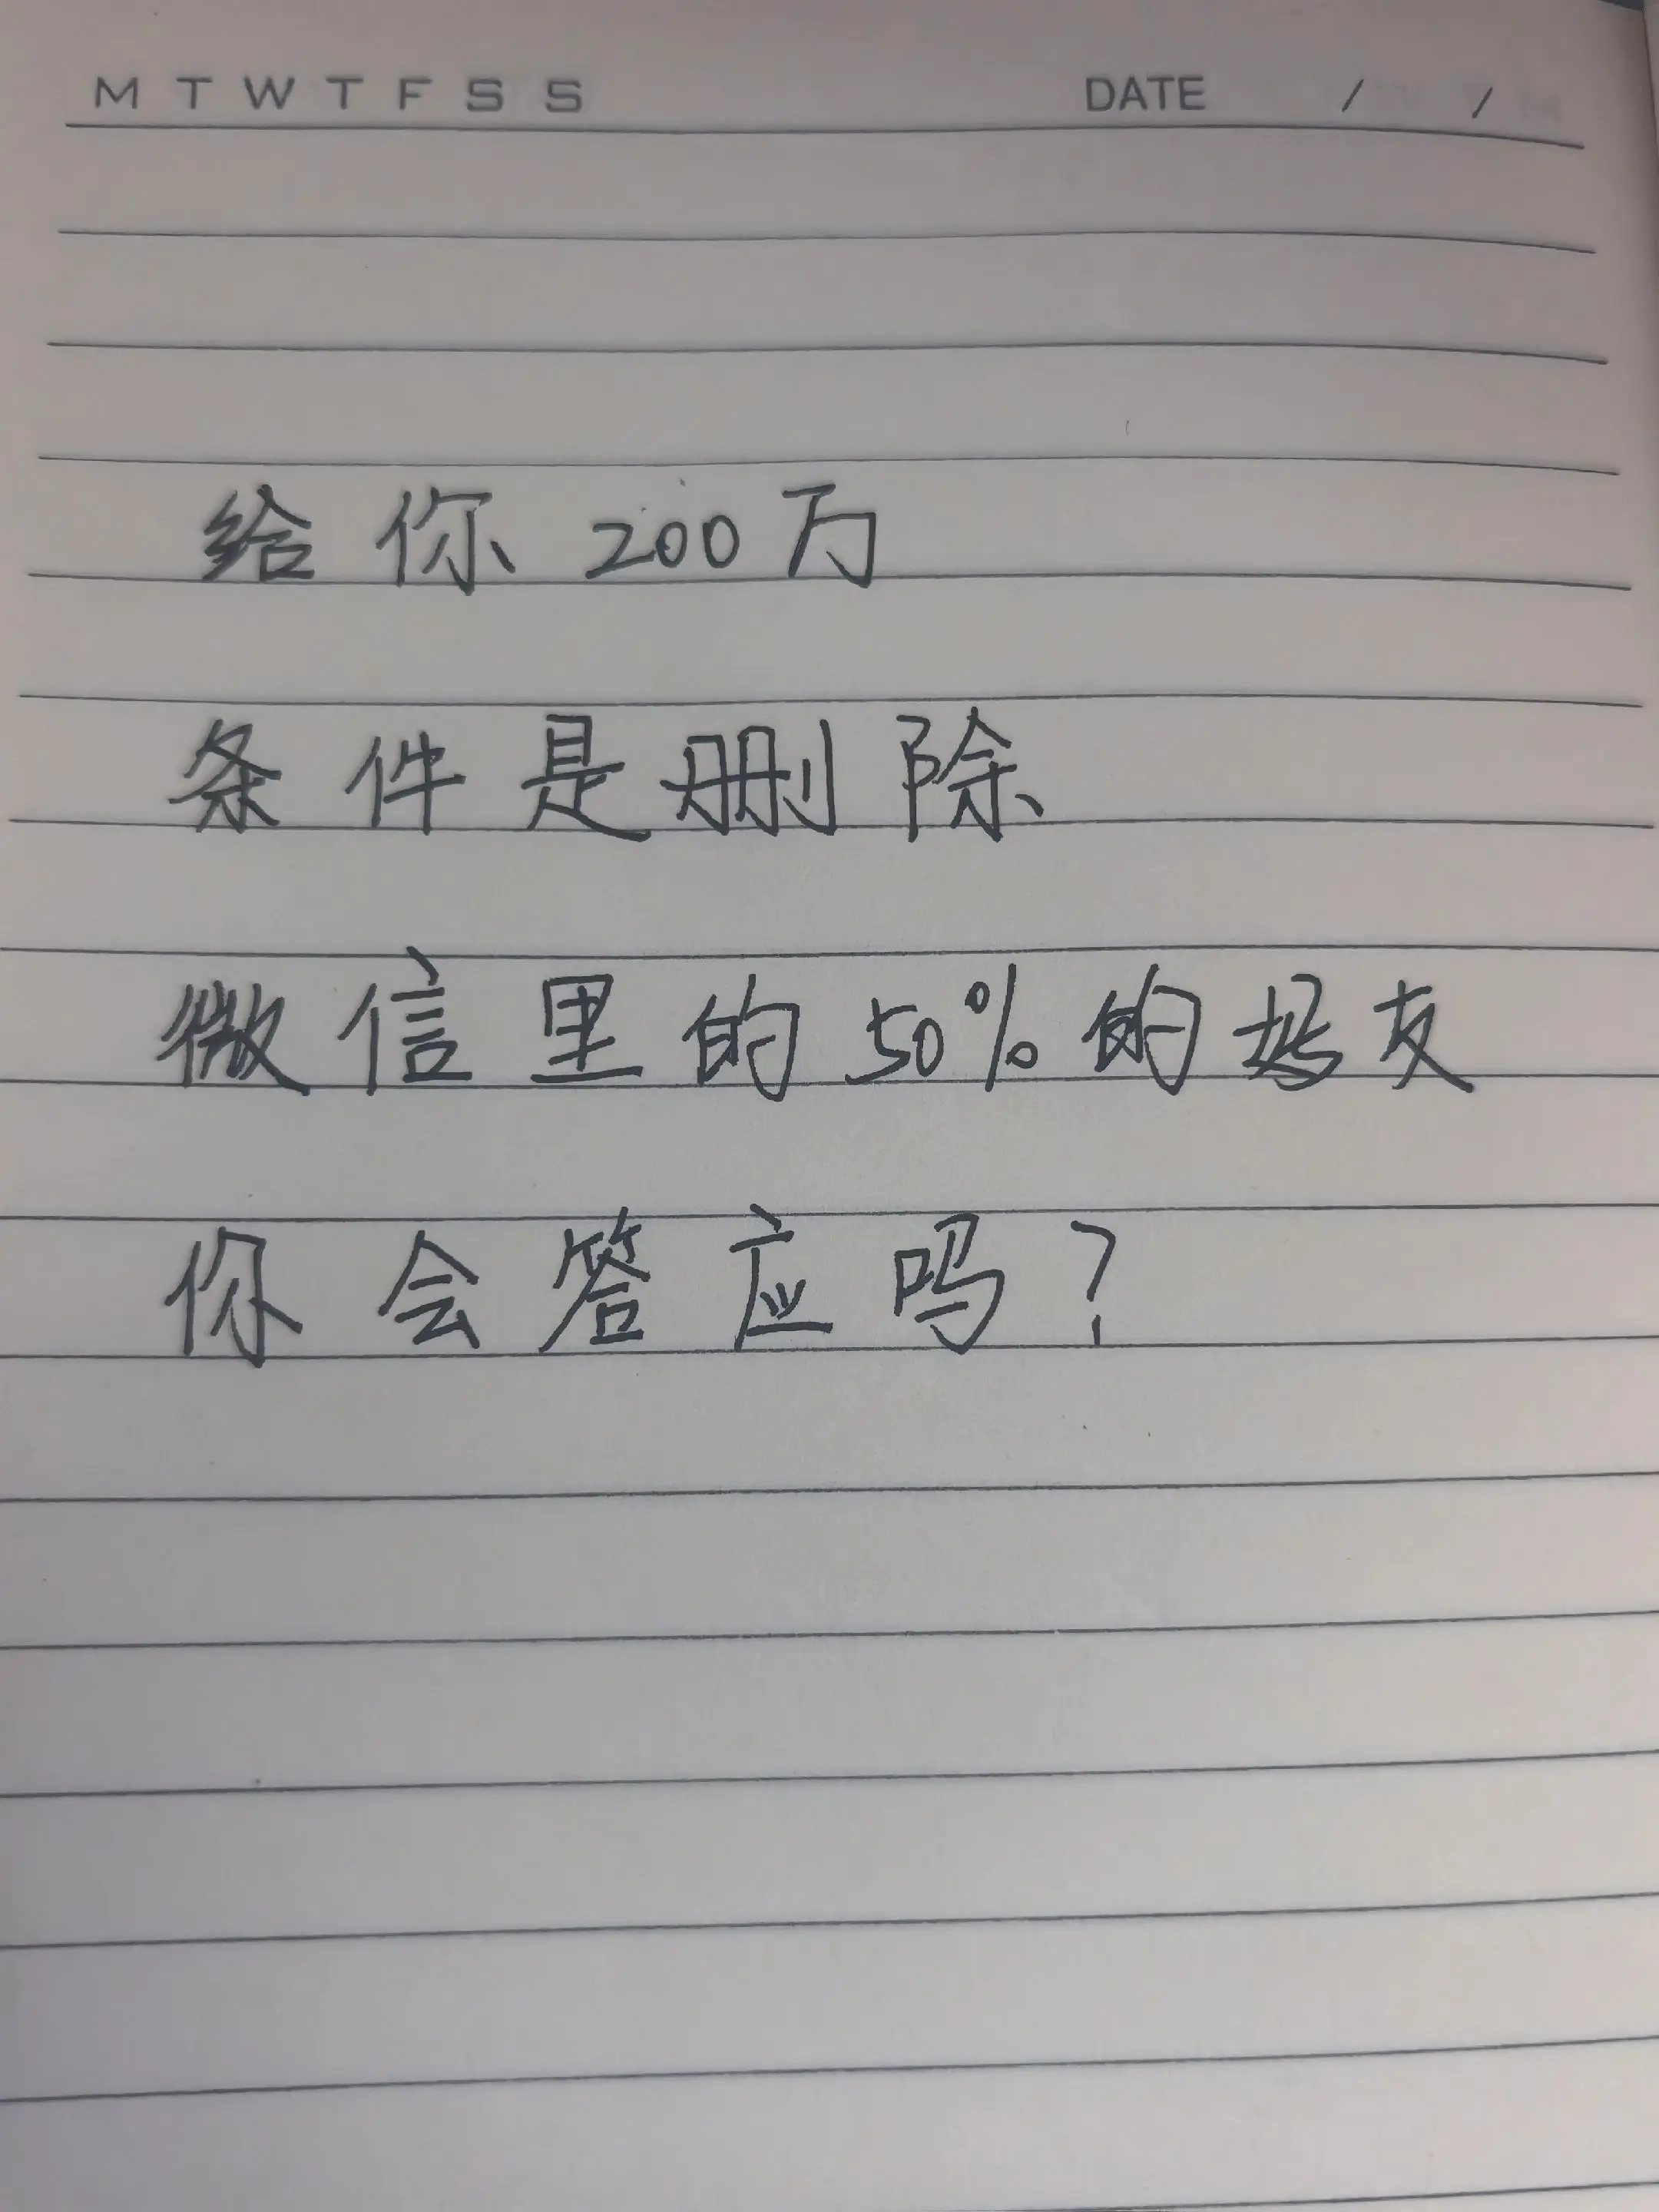 M T W T F S S DATE / /
给你200万
条件是删除
微信里的50%的好友
你会答应吗?